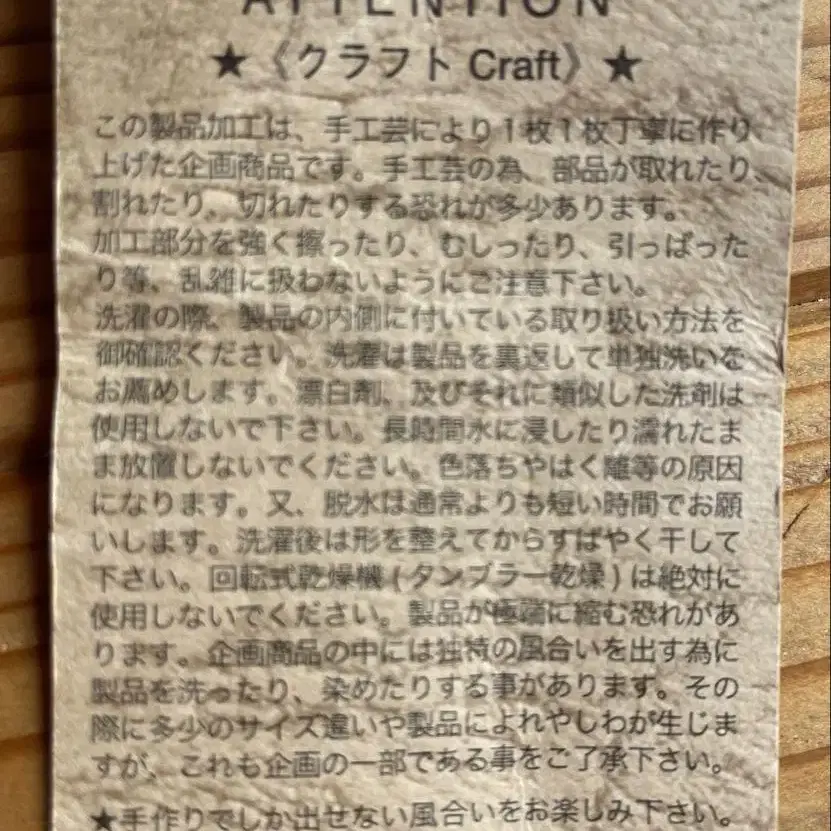 ATTENTION
★《クラフト Craft》★
この製品加工は、手工芸により1枚1枚丁寧に作り
上げた企画商品です。手工芸の為、部品が取れたり、
割れたり、切れたりする恐れが多少あります。
加工部分を強く擦ったり、むしったり、引っぱった
り等、乱雑に扱わないようにご注意下さい。
洗濯の際、製品の内側に付いている取り扱い方法を
御確認ください。洗濯は製品を裏返して単独洗いを
お薦めします。漂白剤、及びそれに類似した洗剤は
使用しないで下さい。長時間水に浸したり濡れたま
ま放置しないでください。色落ちやはく離等の原因
になります。又、脱水は通常よりも短い時間でお願
いします。洗濯後は形を整えてからすばやく干して
下さい。回転式乾燥機(タンブラー乾燥)は絶対に
使用しないでください。製品が極端に縮む恐れがあ
ります。企画商品の中には独特の風合いを出す為に
製品を洗ったり、染めたりする事があります。その
際に多少のサイズ違いや製品によれやしわが生じま
すが、これも企画の一部である事をご了承下さい。
★手作りでしか出せない風合いをお楽しみ下さい。